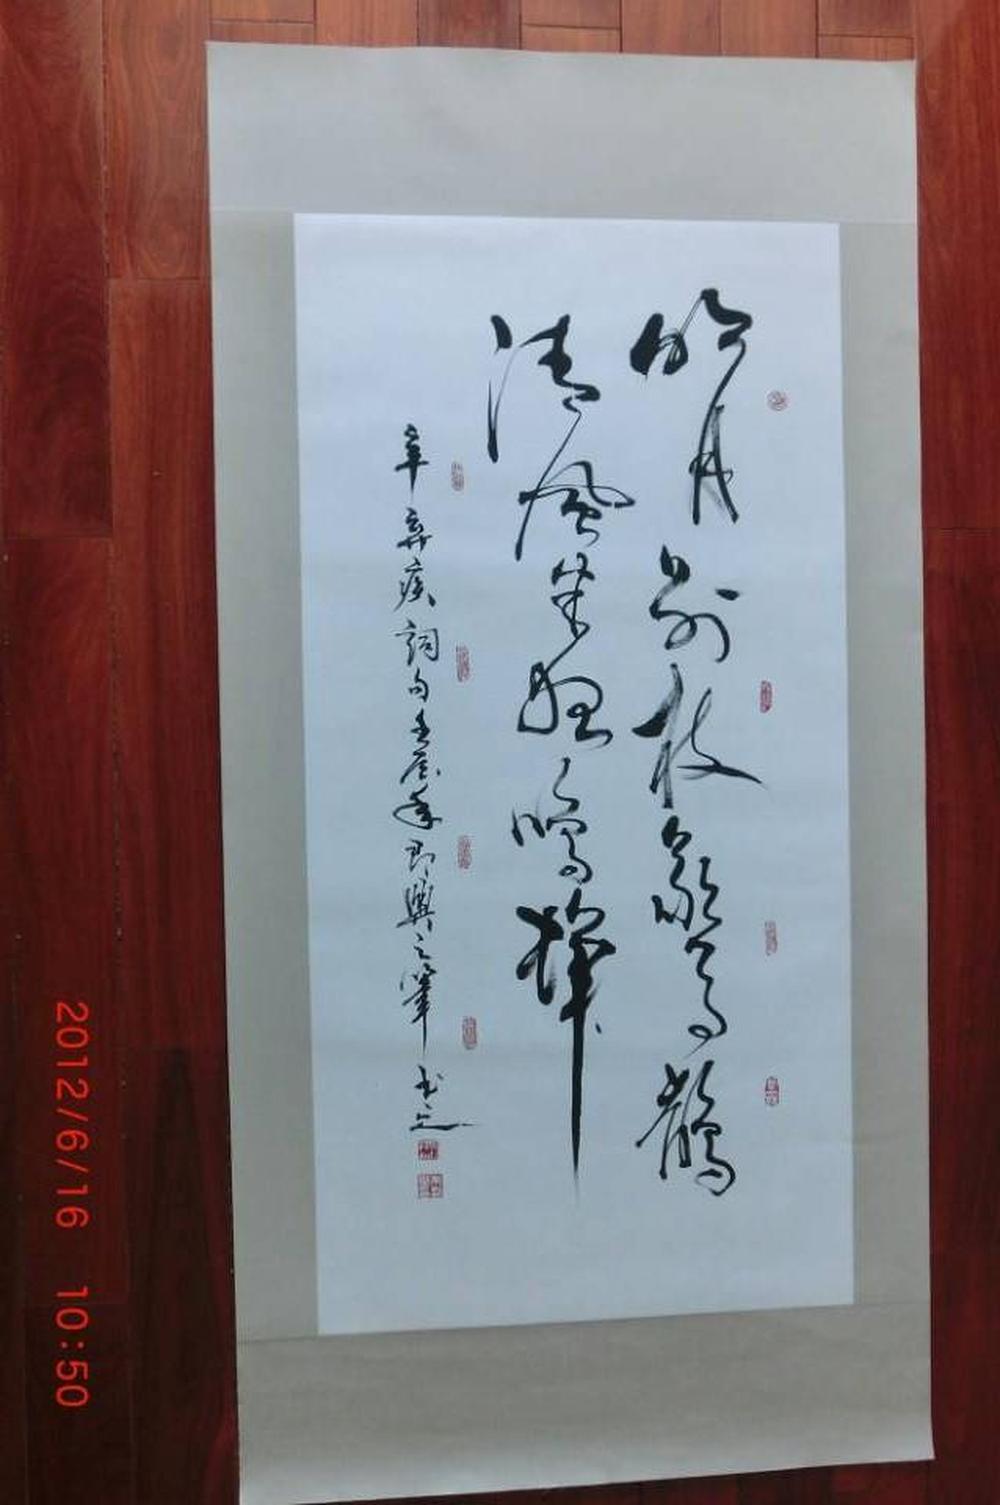 明月别枝惊鹊
清风半夜鸣蝉
辛弃疾詞句壬辰年即興之筆
2012/6/16 10:50